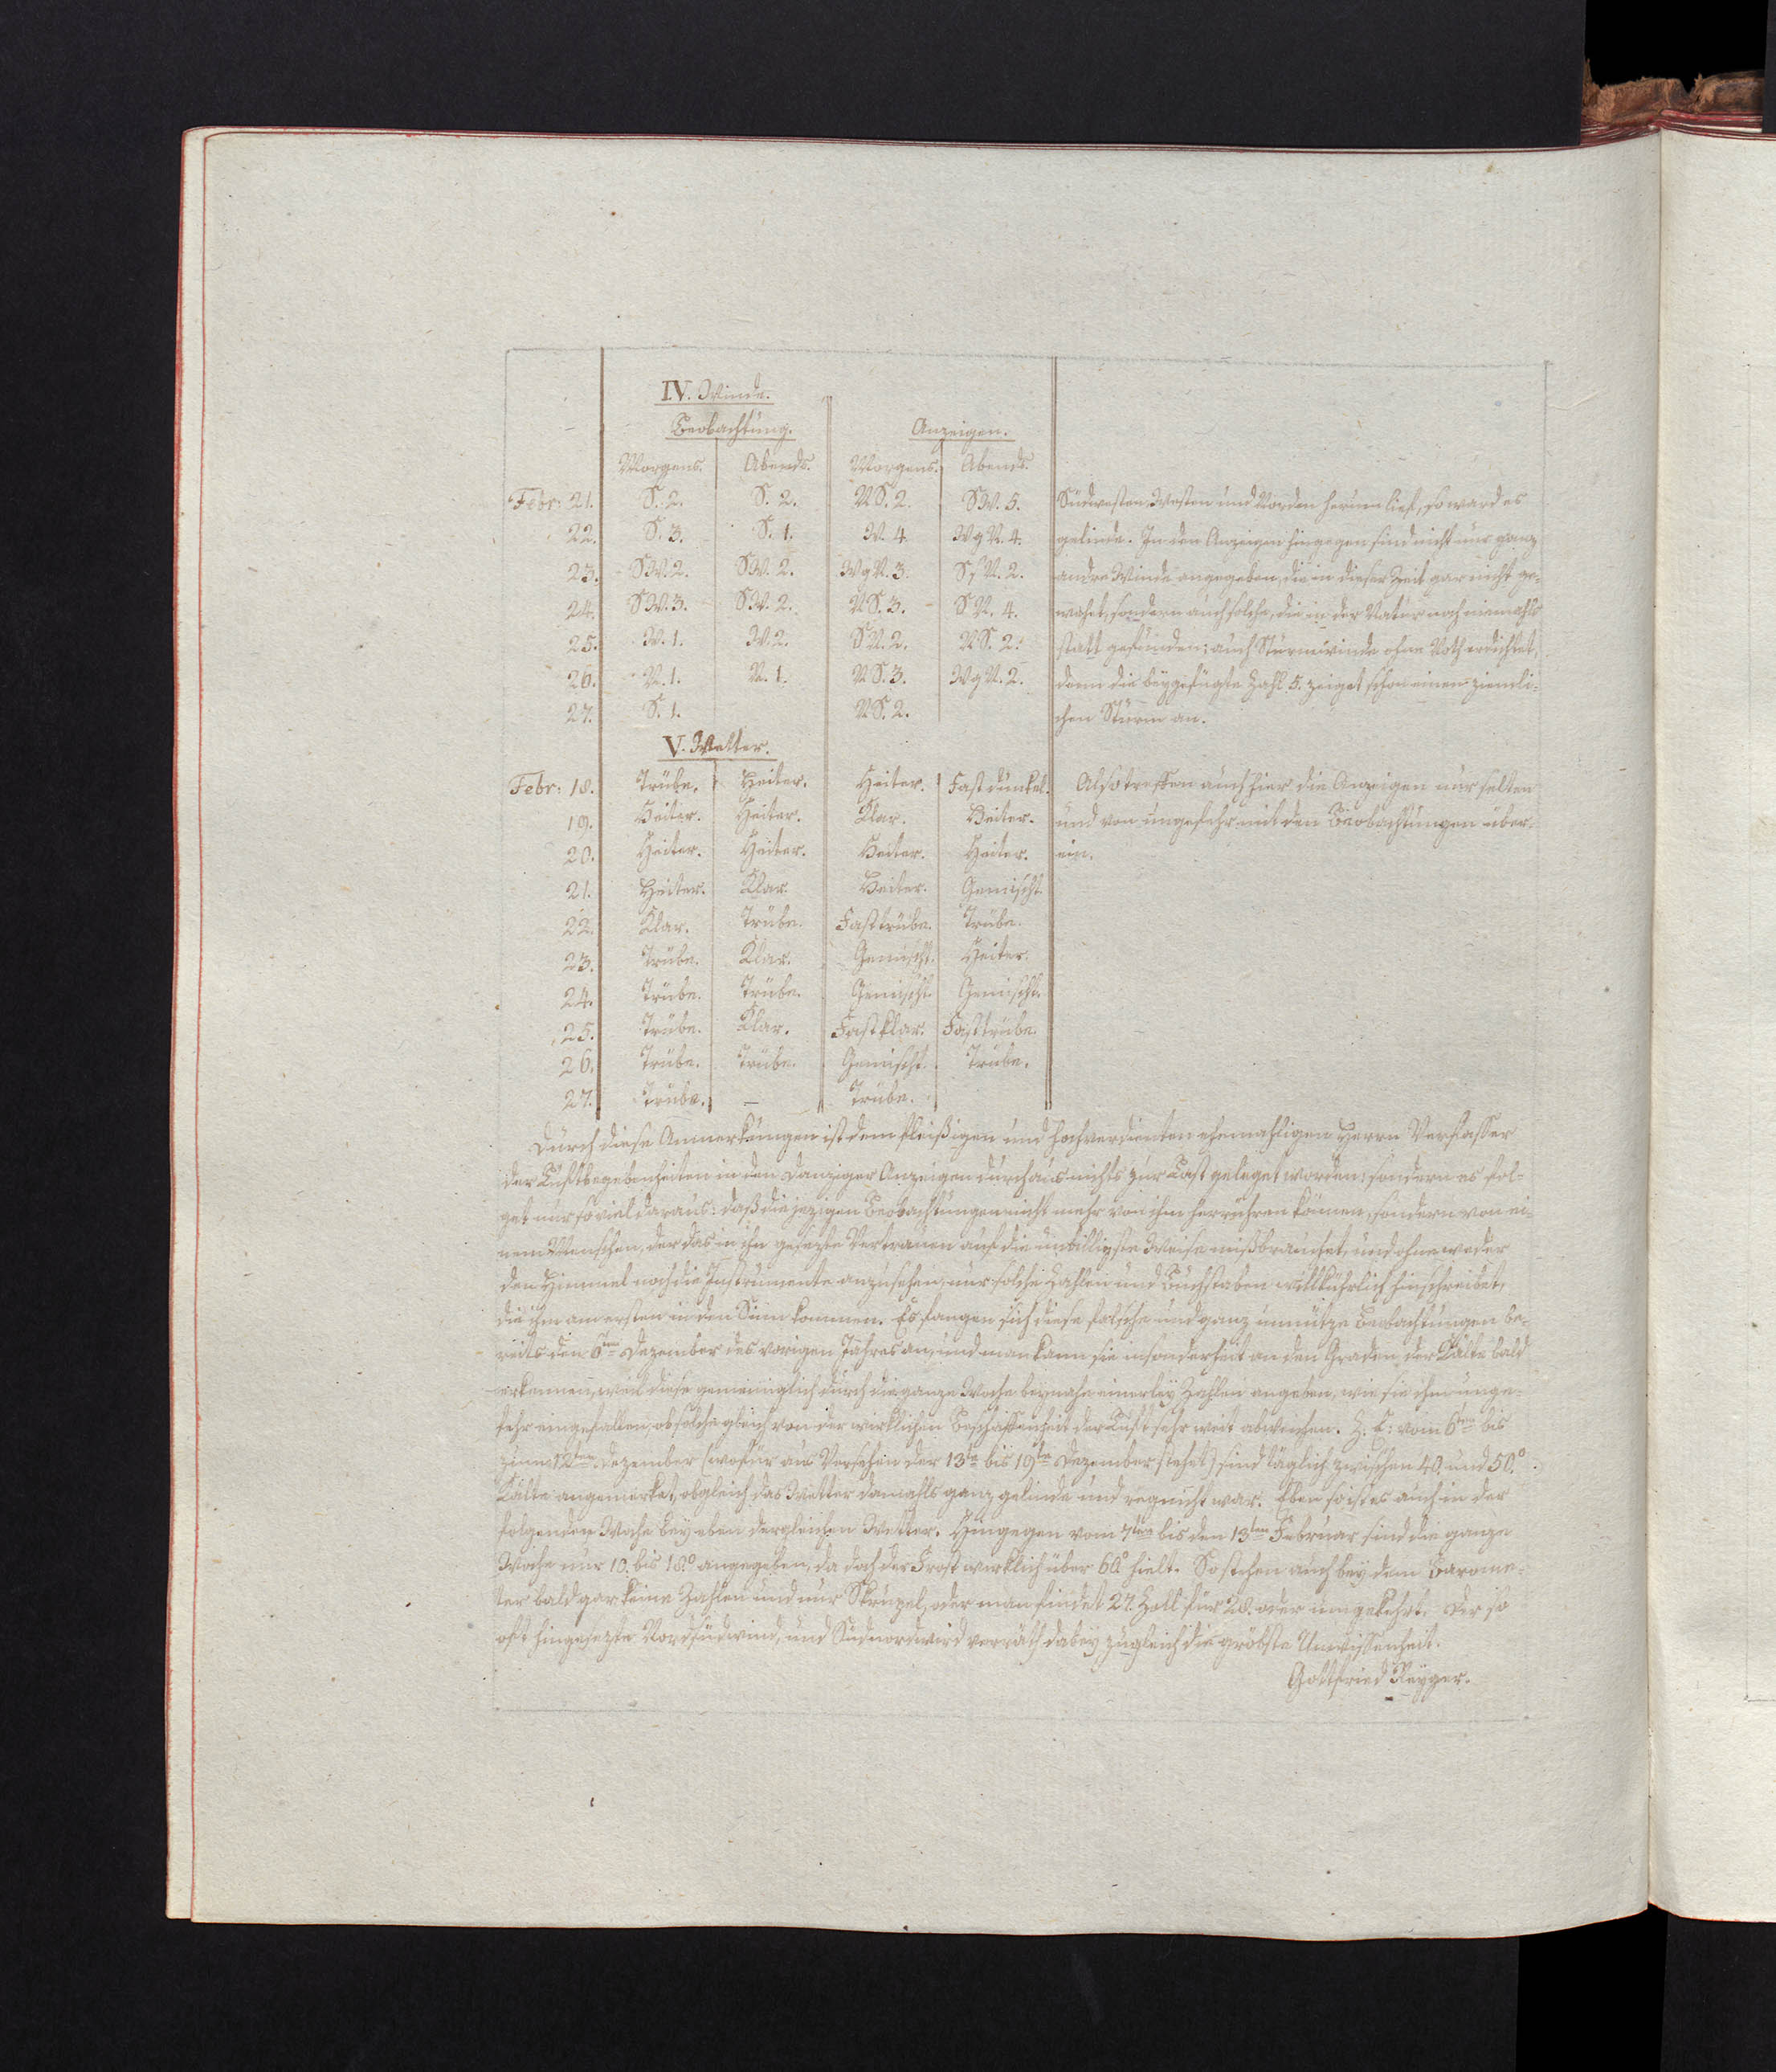 IV. Winde.
Beobachtung. Anzeigen.
Morgens. Abends. Morgens. Abends.
Febr: 21. S. 2. S. 2. NS. 2. SW. 5. Südwesten, Westen und Norden herum lief, so ward es
22. S. 3. S. 1. W. 4. WgN. 4. gelinde. In den Anzeigen hingegen sind nicht nur ganz
23. SW. 2. SW. 2. WgN. 3. SN. 2. andre Winde angegeben, die in dieser Zeit gar nicht ge-
24. SW. 3. SW. 2. NS. 3. SN. 4. wehet, sondern auch solche, die in der Natur noch niemahls
25. W. 1. W. 2. SN. 2. NS. 2. statt gefunden; auch Sturmwinde ohne Noth erdichtet,
26. N. 1. N. 1. NS. 3. WgN. 2. denn die beygefügte Zahl 5. zeiget schon einen ziemli-
27. S. 1. NS. 2. chen Sturm an.
V. Wetter.
Febr: 18. Trübe. Heiter. Heiter. Fast dunkel. Also treffen auch hier die Anzeigen nur selten
19. Heiter. Heiter. Klar. Heiter. und von ungefehr mit den Beobachtungen über-
20. Heiter. Heiter. Heiter. Heiter. ein.
21. Heiter. Klar. Heiter. Gemischt.
22. Klar. Trübe. Fast trübe. Trübe.
23. Trübe. Klar. Gemischt. Heiter.
24. Trübe. Trübe. Gemischt. Gemischt.
25. Trübe. Klar. Fast klar. Fast trübe.
26. Trübe. Trübe. Gemischt. Trübe.
27. Trübe. — Trübe.
Durch diese Anmerkungen ist dem fleißigen und hochverdienten ehemahligen Herrn Verfasser
der Luftbegebenheiten in den Danziger Anzeigen durchaus nichts zur Last geleget worden: sondern es fol-
get nur so viel daraus: daß die jezigen Beobachtungen nicht mehr von ihm herrühren können, sondern von ei-
nem Menschen, der das in ihn gesezte Vertrauen auf die unbilligste Weise mißbrauchet, und ohne weder
den Himmel noch die Instrumente anzusehen, nur solche Zahlen und Buchstaben willkührlich hinschreibet,
die ihm am ersten in den Sinn kommen. Es fangen sich diese falsche und ganz unnütze Beobachtungen be-
reits den 6ten Dezember des vorigen Jahres an, und man kann sie insonderheit an den Graden der Kälte bald
erkennen, weil diese gemeiniglich durch die ganze Woche beynahe einerley Zahlen angeben, wie sie ihm unge-
fehr eingefallen, ob solche gleich von der wirklichen Beschaffenheit der Luft sehr weit abweichen. Z. E: vom 6ten bis
zum 12ten Dezember (wofür aus Versehen der 13te bis 19te Dezember stehet) sind täglich zwischen 40. und 50.°
Kälte angemerket, obgleich das Wetter damahls ganz gelinde und regnicht war. Eben so ist es auch in der
folgenden Woche bey eben dergleichen Wetter. Hingegen vom 7ten bis den 13ten Februar sind die ganze
Woche nur 10. bis 18.° angegeben, da doch der Frost wirklich über 60.° hielt. So stehen auch bey dem Barome-
ter bald gar keine Zahlen und nur Skrupel, oder man findet 27. Zoll für 28. oder umgekehrt. Der so
oft hingesezte Nordsüdwind, und Südnordwind verräth dabey zugleich die gröbste Unwissenheit.
Gottfried Reyger.